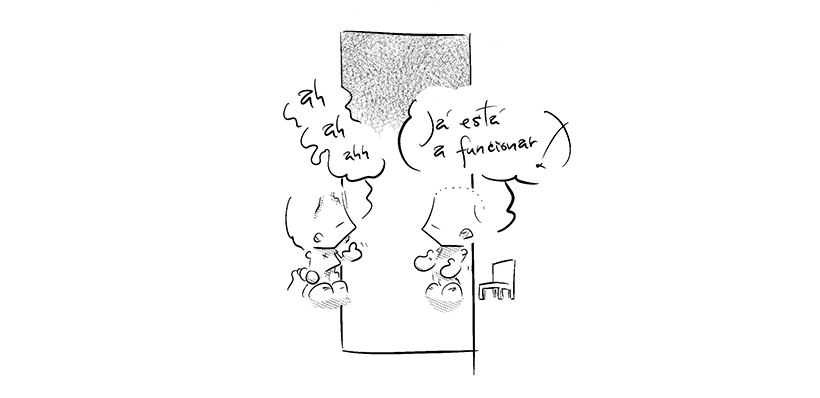 ah
ah
ahh
Já está
a funcionar